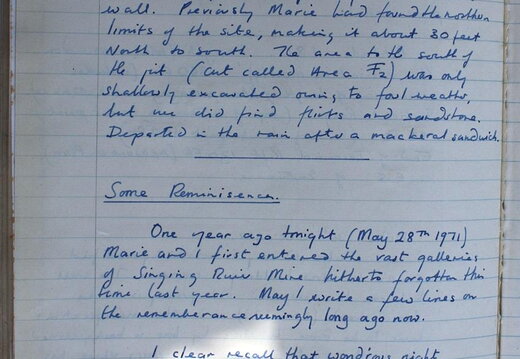 wall. Previously Marie had found the northern
limits of the site, making it about 30 feet
North to south. The area to the south of
the pit (cut called Area F2) was only
shallowly excavated owing to foul weather,
but we did find flints and sandstone.
Departed in the rain after a mackeral sandwich.
Some Reminisence.
One year ago tonight (May 28TH 1971)
Marie and I first entered the vast galleries
of Singing River Mine hitherto forgotten this
time last year. May I write a few lines on
the rememberance seemingly long ago now.
I clear recall that wondrous night